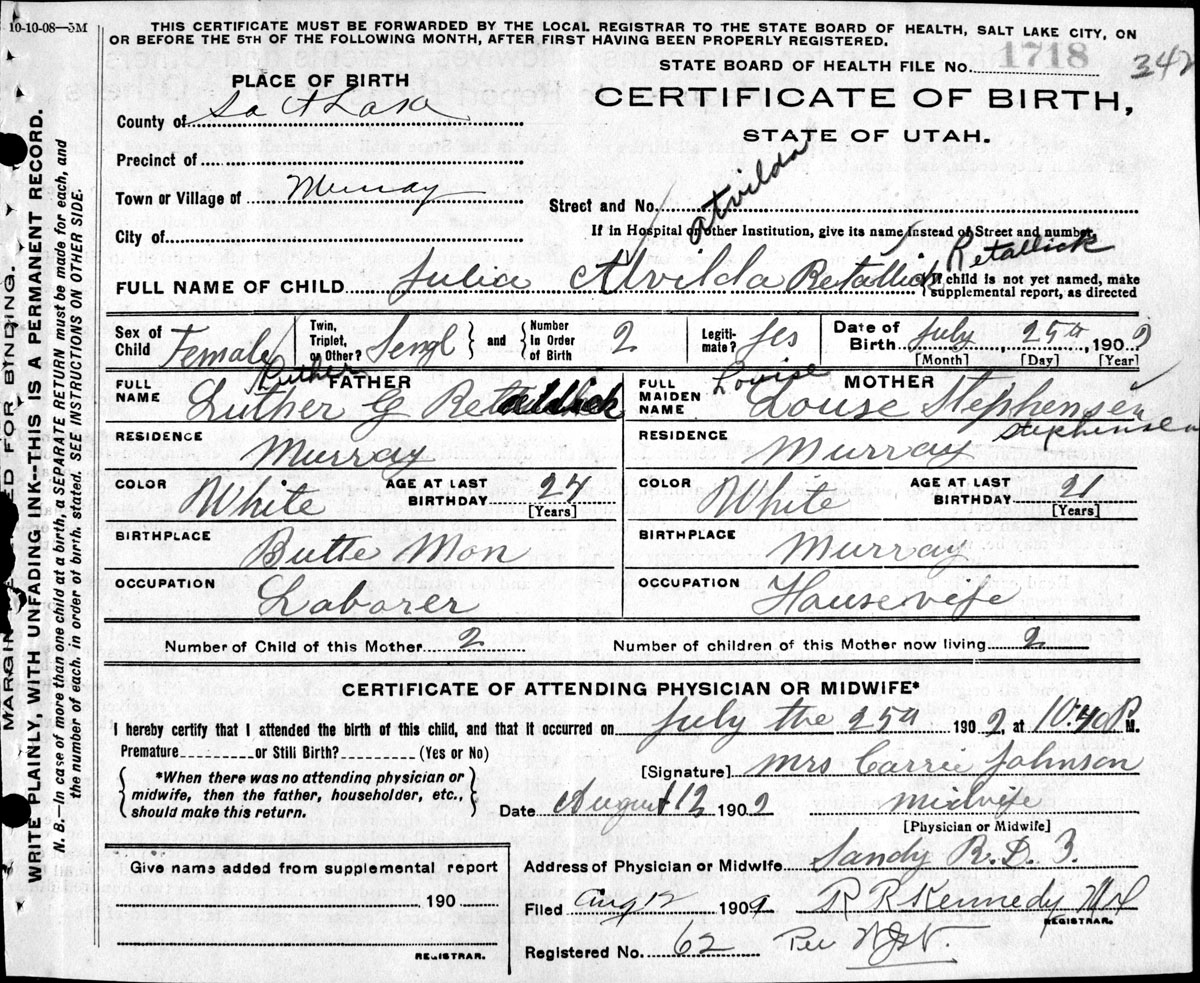 10-10-08—5M
THIS CERTIFICATE MUST BE FORWARDED BY THE LOCAL REGISTRAR TO THE STATE BOARD OF HEALTH, SALT LAKE CITY, ON
OR BEFORE THE 5TH OF THE FOLLOWING MONTH, AFTER FIRST HAVING BEEN PROPERLY REGISTERED.
STATE BOARD OF HEALTH FILE No. 1718
342
PLACE OF BIRTH
CERTIFICATE OF BIRTH,
STATE OF UTAH.
County of Salt Lake
Precinct of
Town or Village of Murray
Street and No.
City of
If in Hospital or other Institution, give its name, instead of Street and number.
Atvilda
Retallick
FULL NAME OF CHILD Julia Alvilda Retallick
If child is not yet named, make
supplemental report, as directed
Sex of Child Female
Twin, Triplet, or Other? Sengl and Number In Order of Birth 2
Legitimate? yes
Date of Birth July 25th, 1909
[Month] [Day] [Year]
Luther
FATHER
FULL NAME Luther G Retallick
RESIDENCE Murray
COLOR White
AGE AT LAST BIRTHDAY 24 [Years]
BIRTHPLACE Butte Mon
OCCUPATION Laborer
Louise
MOTHER
FULL MAIDEN NAME Louse Stephensen
Stephensen
RESIDENCE Murray
COLOR White
AGE AT LAST BIRTHDAY 21 [Years]
BIRTHPLACE Murray
OCCUPATION Housewife
Number of Child of this Mother 2
Number of children of this Mother now living 2
CERTIFICATE OF ATTENDING PHYSICIAN OR MIDWIFE*
I hereby certify that I attended the birth of this child, and that it occurred on July the 25th 1909, at 10:40 P.M.
Premature or Still Birth? (Yes or No)
*When there was no attending physician or
midwife, then the father, householder, etc.,
should make this return.
[Signature] Mrs Carrie Johnson
Date August 12 1909
midwife
[Physician or Midwife]
Give name added from supplemental report
190
REGISTRAR.
Address of Physician or Midwife Sandy R.D. 3.
Filed Aug 12 1909
R R Kennedy MD
REGISTRAR.
Registered No. 62
Per
MARGIN RESERVED FOR BINDING.
WRITE PLAINLY, WITH UNFADING INK--THIS IS A PERMANENT RECORD.
N. B.—In case of more than one child at a birth, a SEPARATE RETURN must be made for each, and
the number of each, in order of birth, stated. SEE INSTRUCTIONS ON OTHER SIDE.